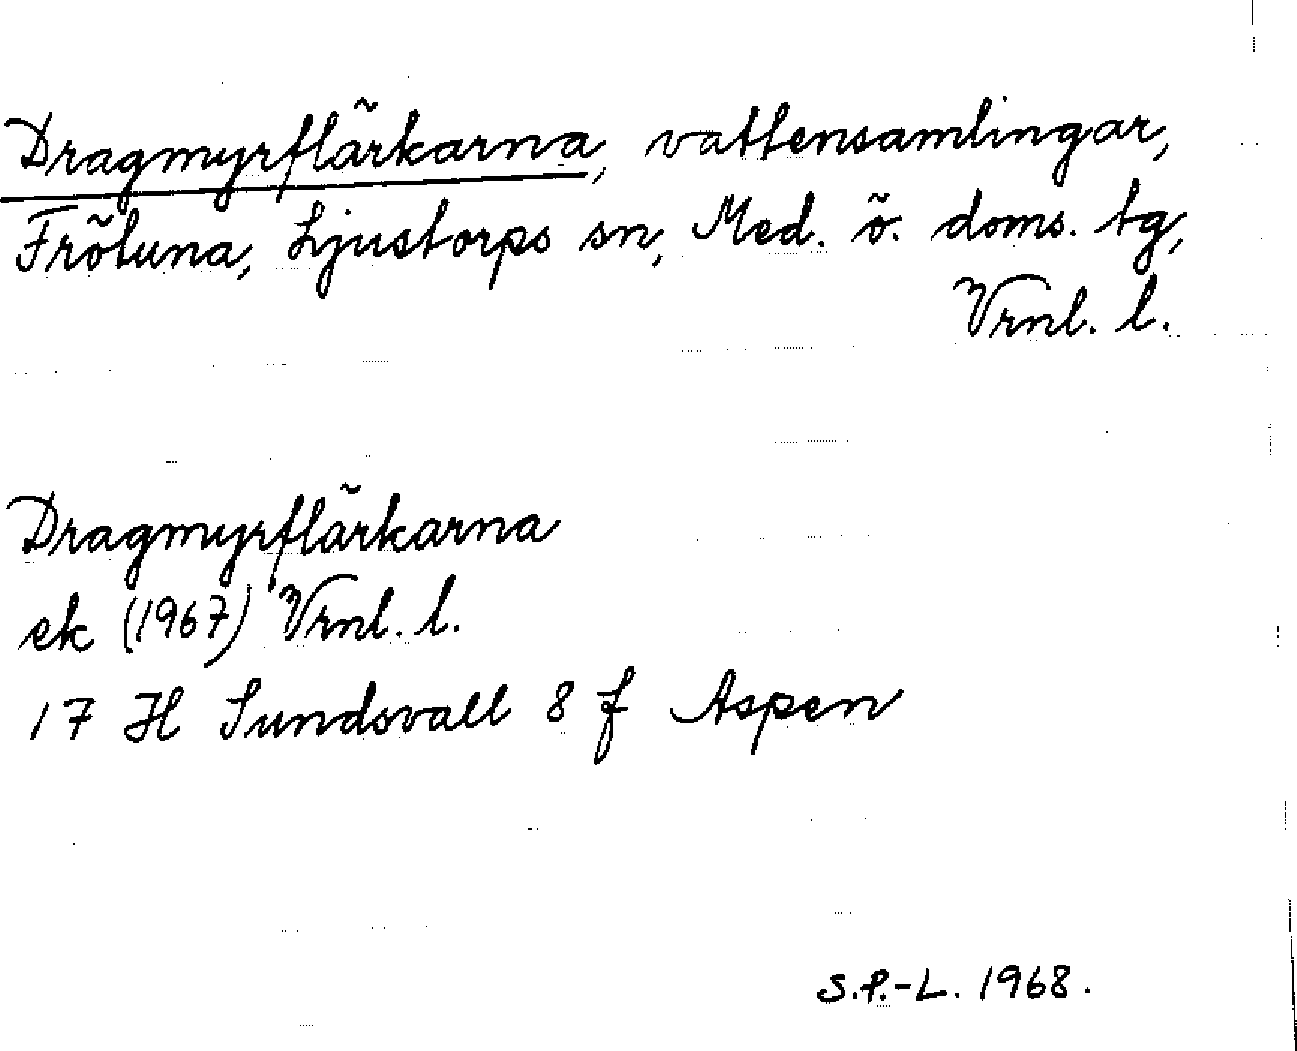 Dragmyrflärkarna, vattensamlingar,
Fröluna, Ljustorps sn, Med. ö. doms. tg,
Vrnl. l.
Dragmyrflärkarna
ek (1967) Vrnl. l.
17 H Sundsvall 8 f Aspen
S.P.-L. 1968.